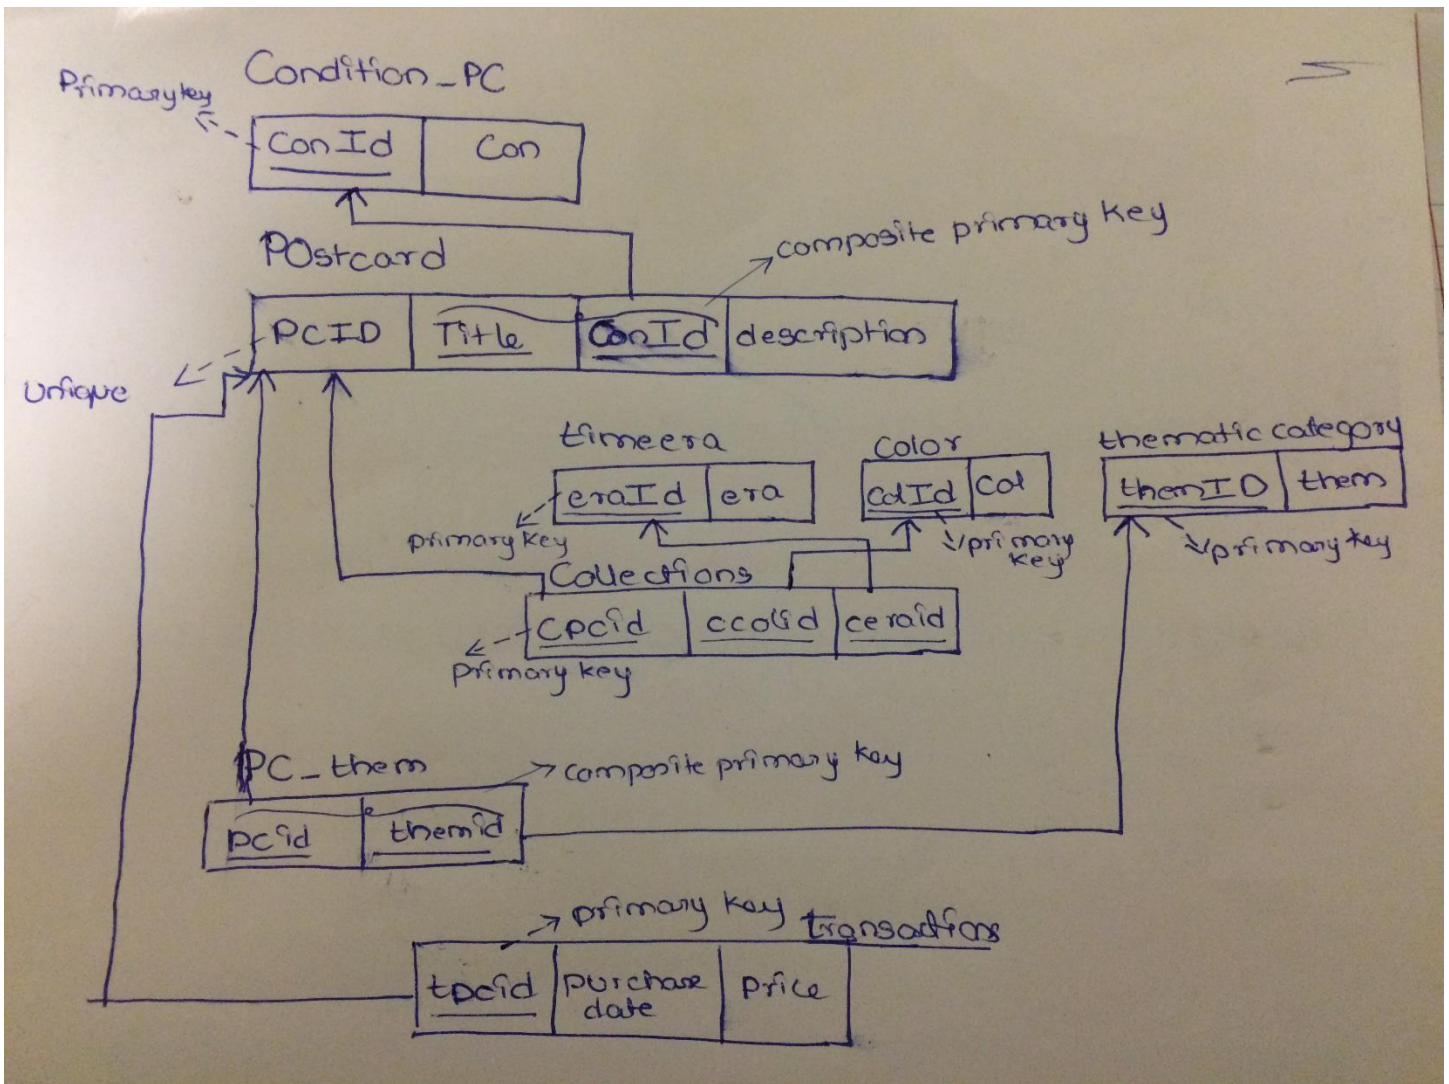 Condition_PC
Primary key
ConId Con
Postcard
composite primary key
PCID Title ConId description
Unique
timeera
color
thematic category
eraId era
colId col
themID them
primary key
primary
key
primary key
Collections
cpcid ccolid ceraid
primary key
PC_them
composite primary key
pcid themid
primary key
transactions
tpcid purchase
date
price